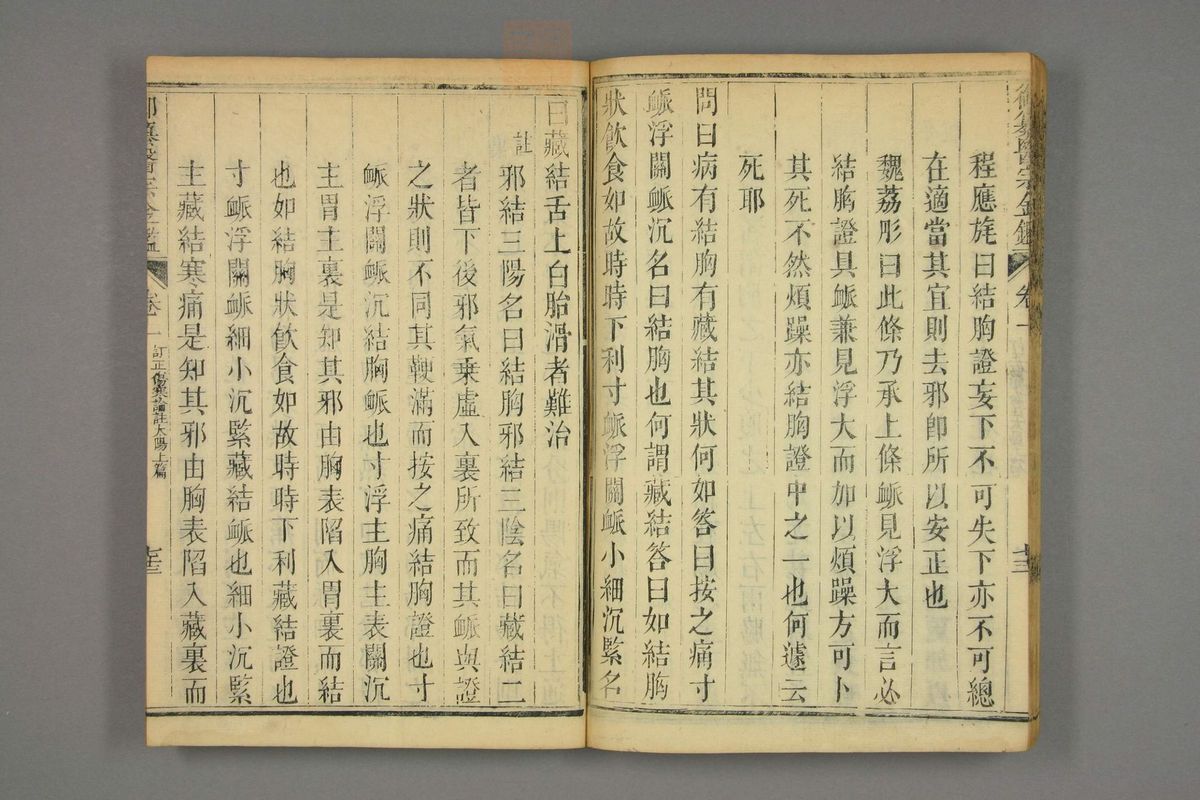 程應旄曰結胸證妄下不可失下亦不可總
在適當其宜則去邪卽所以安正也
魏荔彤曰此條乃承上條衇見浮大而言必
結胸證具衇兼見浮大而加以煩躁方可卜
其死不然煩躁亦結胸證中之一也何遽云
死耶
問曰病有結胸有藏結其狀何如答曰按之痛寸
衇浮關衇沉名曰結胸也何謂藏結答曰如結胸
狀飮食如故時時下利寸衇浮關衇小細沉緊名
曰藏結舌上白胎滑者難治
註 邪結三陽名曰結胸邪結三陰名曰藏結二
者皆下後邪氣乗虛入裏所致而其衇與證
之狀則不同其鞕滿而按之痛結胸證也寸
衇浮關衇沉結胸衇也寸浮主胸主表關沉
主胃主裏是知其邪由胸表陷入胃裏而結
也如結胸狀飮食如故時時下利藏結證也
寸衇浮關衇細小沉緊藏結衇也細小沉緊
主藏結寒痛是知其邪由胸表陷入藏裏而
御纂醫宗金鑑 卷一 訂正傷寒論註太陽上篇